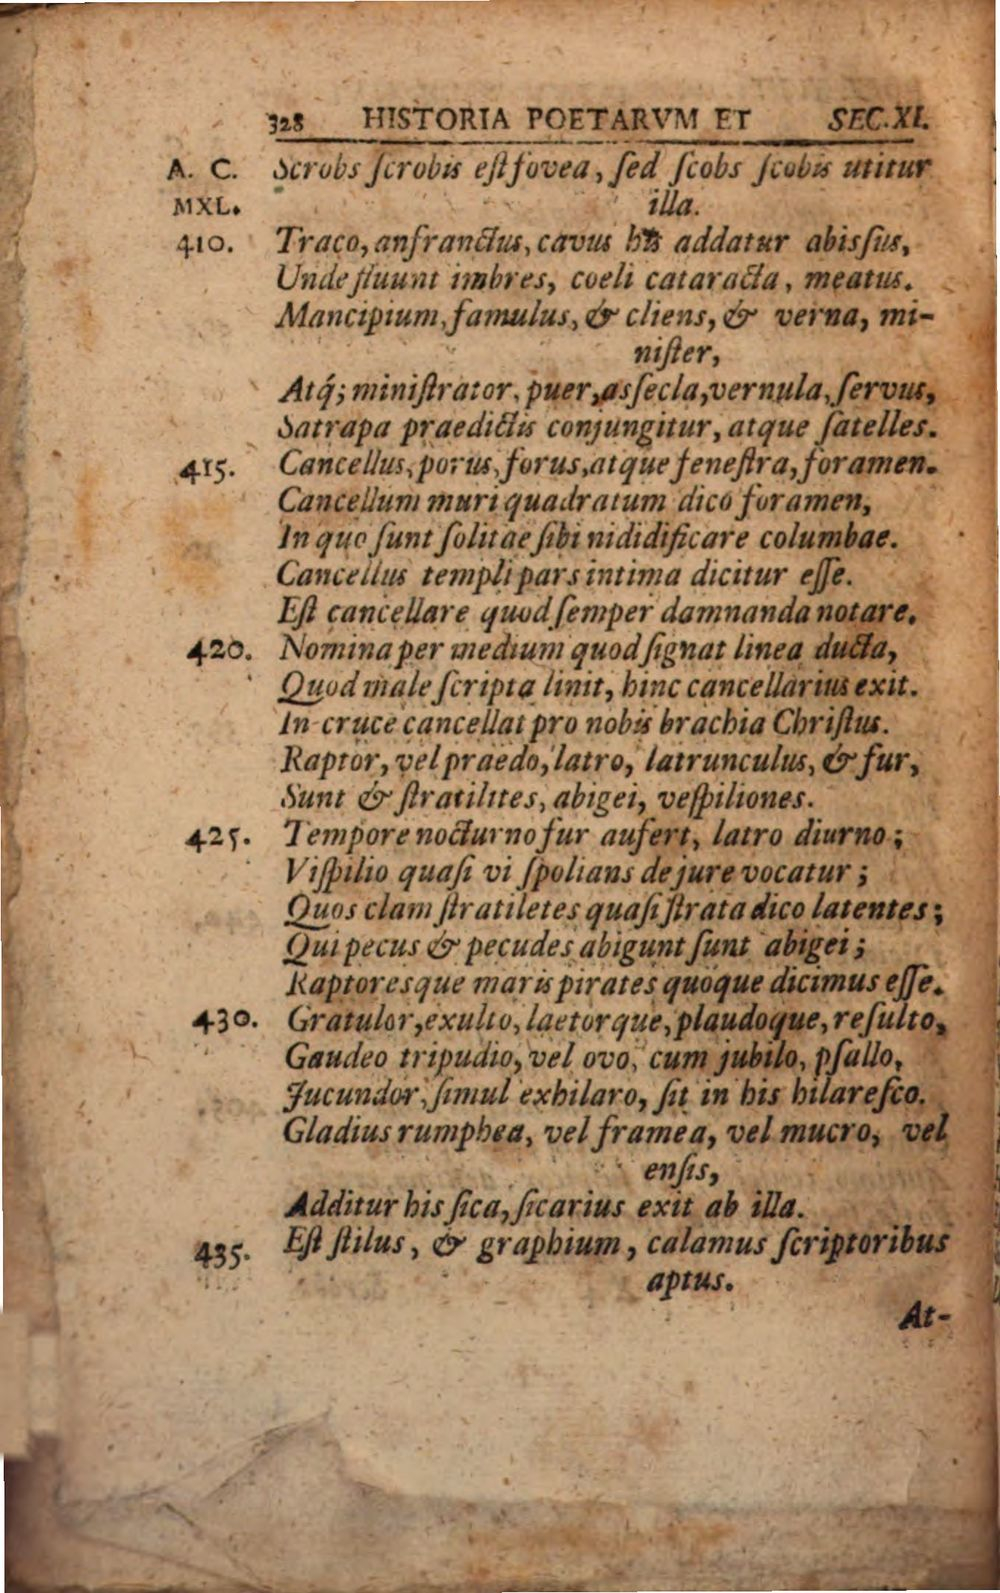 328 HISTORIA POETARVM ET SEC. XI.
A. C. Scrobs ſcrobis eſt fovea, ſed ſcobs ſcobis utitur
MXL. illa.
410. Traco, anfractus, cavus his addatur abisſus,
Unde fluunt imbres, coeli cataracta, meatus.
Mancipium, famulus, & cliens, & verna, mi-
niſter,
Atq́; miniſtrator, puer, asſecla, vernula, ſervus,
Satrapa praedictis conjungitur, atque ſatelles.
415. Cancellus, porus, forus, atque feneſtra, foramen.
Cancellum muri quadratum dico foramen,
In quo ſunt ſolitae ſibi nididificare columbae.
Cancellus templi pars intima dicitur eſſe.
Eſt cancellare quod ſemper damnanda notare.
420. Nomina per medium quod ſignat linea ducta,
Quod male ſcripta linit, hinc cancellarius exit.
In cruce cancellat pro nobis brachia Chriſtus.
Raptor, vel praedo, latro, latrunculus, & fur,
Sunt & ſtratilites, abigei, veſpiliones.
425. Tempore nocturno fur aufert, latro diurno;
Viſpilio quaſi vi ſpolians de jure vocatur;
Quos clam ſtratiletes quaſi ſtrata dico latentes;
Qui pecus & pecudes abigunt ſunt abigei;
Raptoresque maris pirates quoque dicimus eſſe.
430. Gratulor, exulto, laetorque, plaudoque, reſulto,
Gaudeo tripudio, vel ovo, cum jubilo, pſallo,
Jucundor, ſimul exhilaro, ſit in his hilareſco.
Gladius rumphea, vel framea, vel mucro, vel
enſis,
Additur his ſica, ſicarius exit ab illa.
435. Eſt ſtilus, & graphium, calamus ſcriptoribus
aptus.
At-